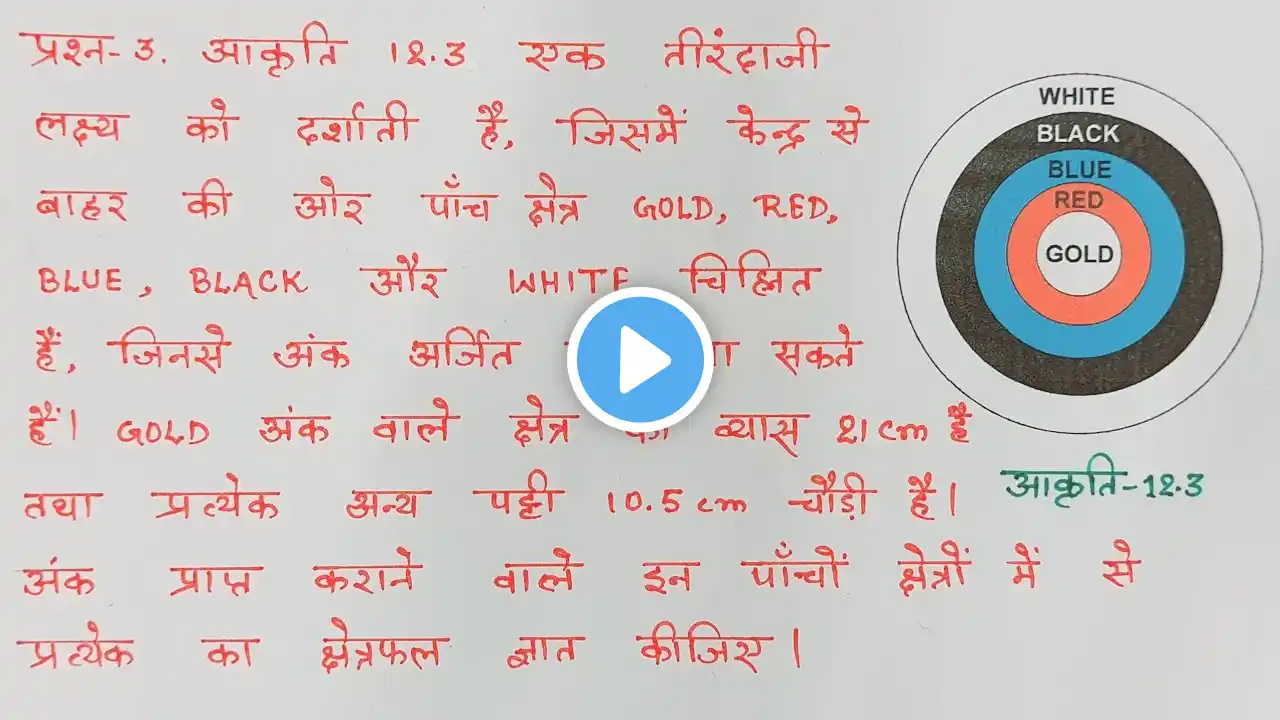 प्रश्न-3. आकृति 12.3 एक तीरंदाजी
लक्ष्य को दर्शाती है, जिसमें केन्द्र से
बाहर की ओर पाँच क्षेत्र GOLD, RED,
BLUE, BLACK और WHITE चिह्नित
हैं, जिनसे अंक अर्जित सकते
हैं। GOLD अंक वाले क्षेत्र का व्यास 21 cm है
तथा प्रत्येक अन्य पट्टी 10.5 cm चौड़ी है।
अंक प्राप्त कराने वाले इन पाँचों क्षेत्रों में से
प्रत्येक का क्षेत्रफल ज्ञात कीजिए।
WHITE
BLACK
BLUE
RED
GOLD
आकृति-12.3